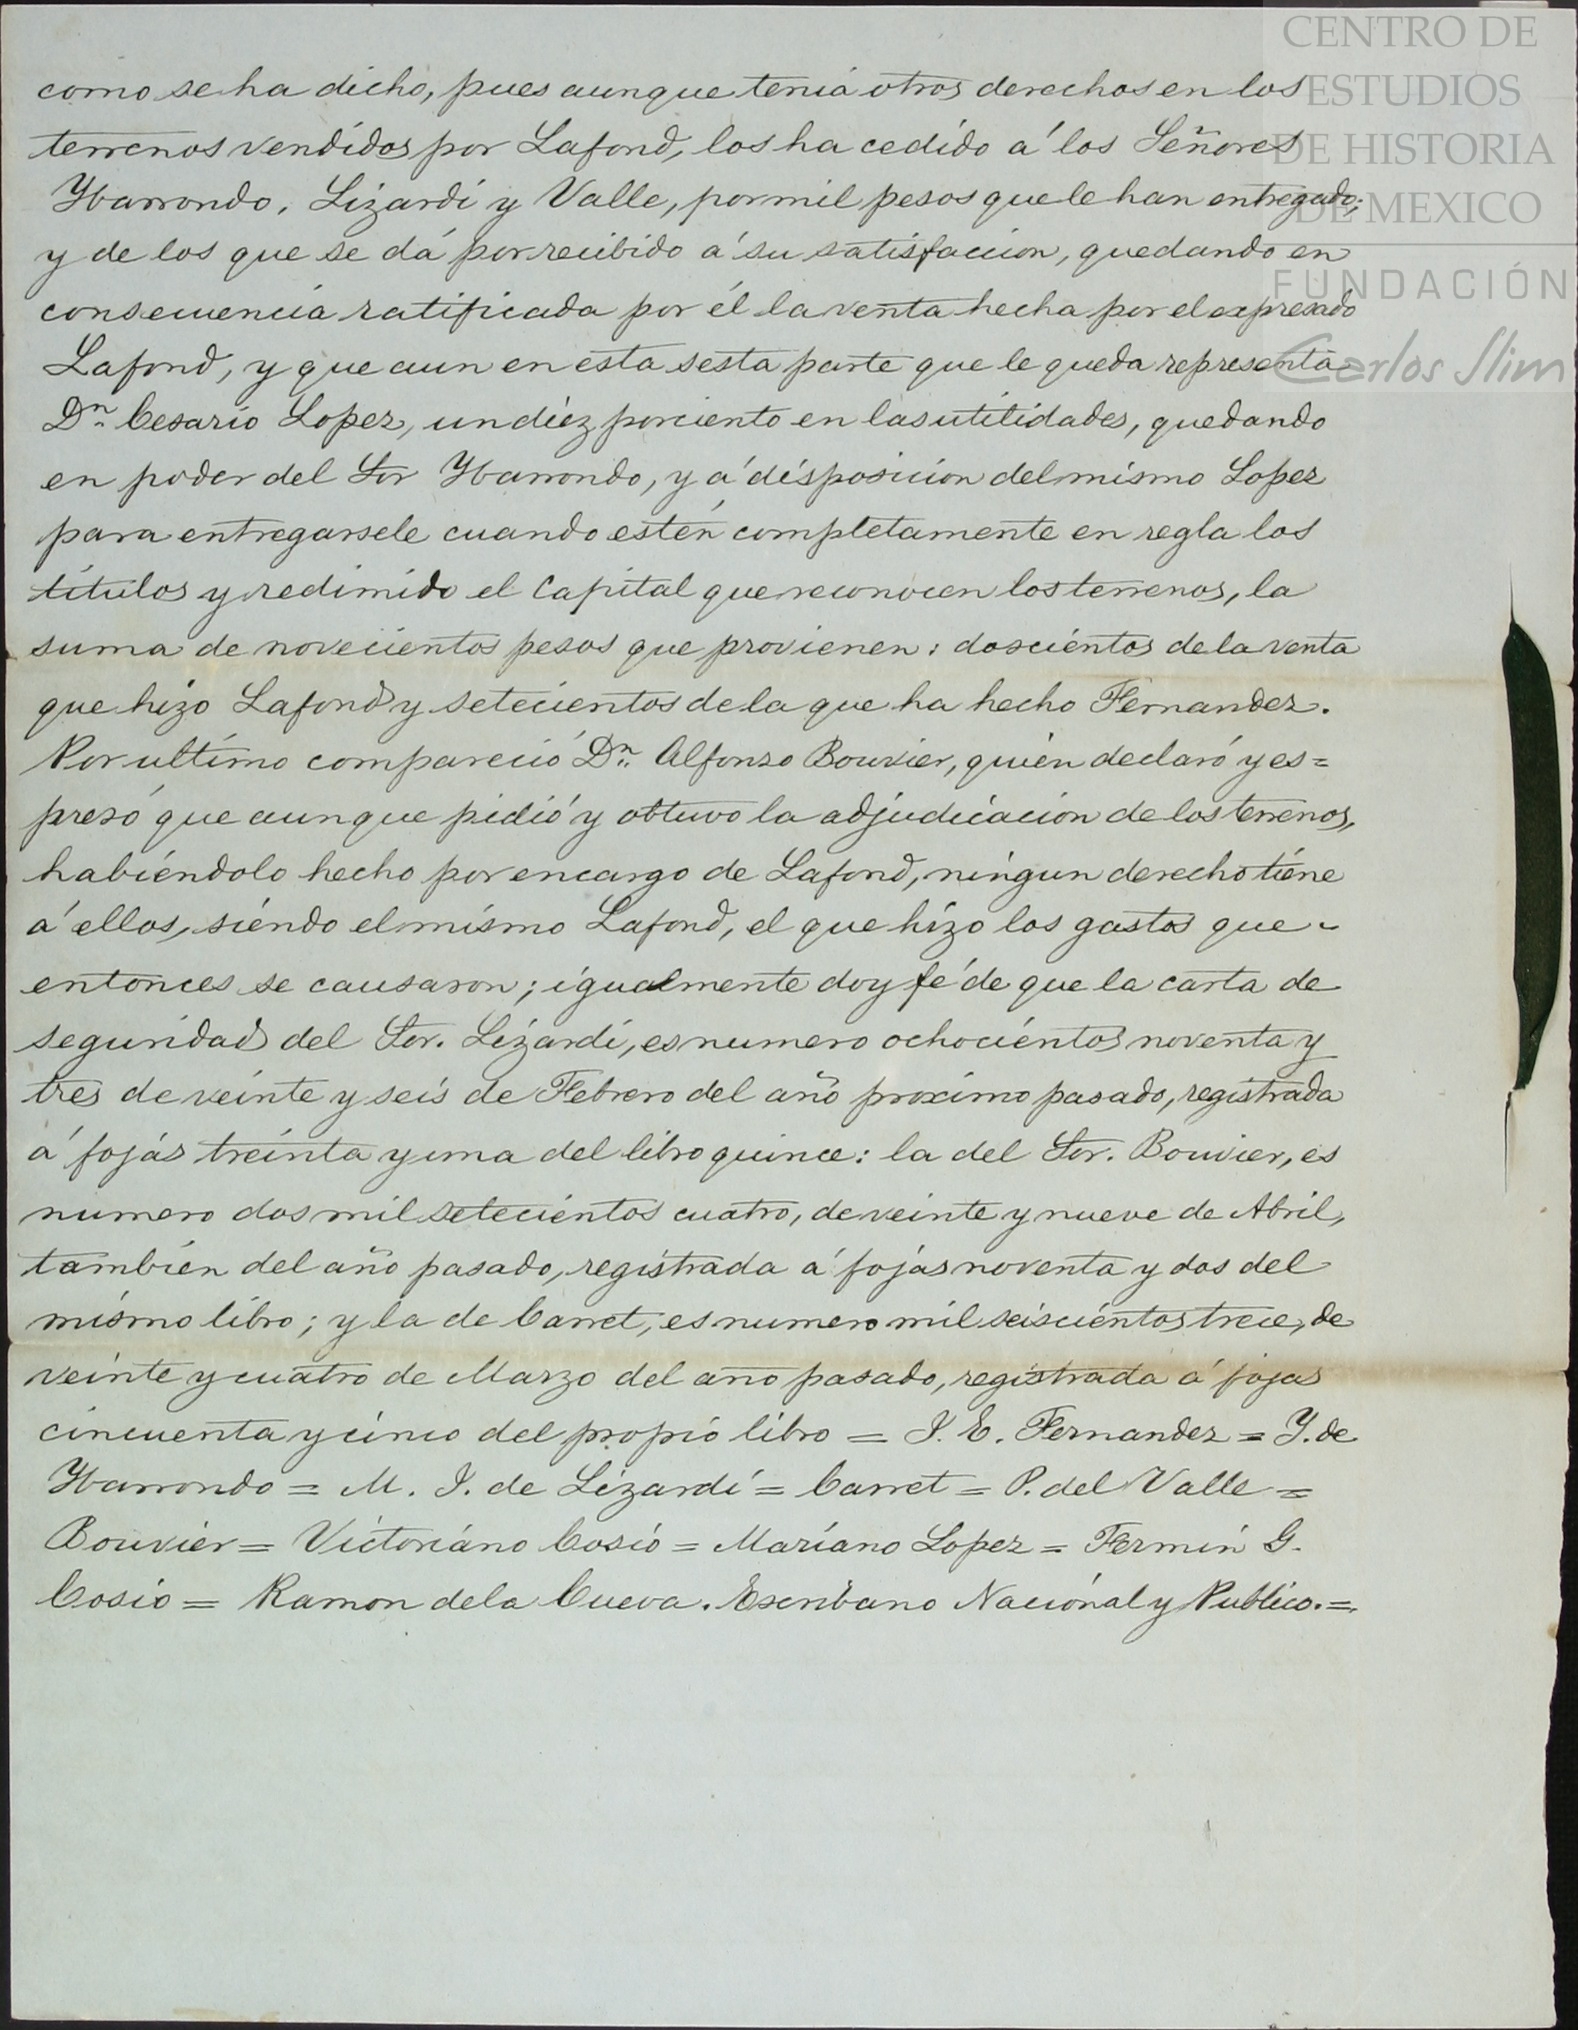 CENTRO DE
ESTUDIOS
DE HISTORIA
DE MEXICO
FUNDACIÓN
Carlos Slim
como se ha dicho, pues aunque tenia otros derechos en los
terrenos vendidos por Lafond, los ha cedido á los Señores
Ybarrondo, Lizardi y Valle, por mil pesos que le han entregado;
y de los que se dá por recibido á su satisfaccion, quedando en
consecuencia ratificada por él la venta hecha por el expresado
Lafond, y que aun en esta sesta parte que le queda representa
Dn. Cesario Lopez, un diez porciento en las utilidades, quedando
en poder del Sor Ybarrondo, y á disposicion del mismo Lopez
para entregarsele cuando estén completamente en regla los
titulos y redimido el Capital que reconocen los terrenos, la
suma de novecientos pesos que provienen: doscientos de la venta
que hizo Lafond y setecientos de la que ha hecho Fernandez.
Por ultimo compareció Dn. Alfonso Bouvier, quien declaró y es=
presó que aunque pidió y obtuvo la adjudicacion de los terrenos,
habiéndolo hecho por encargo de Lafond, ningun derecho tiene
á ellos, siendo el mismo Lafond, el que hizo los gastos que
entonces se causaron; igualmente doy fé de que la carta de
seguridad del Sor. Lizardi, es numero ochocientos noventa y
tres de veinte y seis de Febrero del año proximo pasado, registrada
á fojas treinta y una del libro quince: la del Sor. Bouvier, es
numero dos mil setecientos cuatro, de veinte y nueve de Abril,
tambien del año pasado, registrada á fojas noventa y dos del
mismo libro; y la de Carret, es numero mil seiscientos trece, de
veinte y cuatro de Marzo del año pasado, registrada á fojas
cincuenta y cinco del propio libro = J. E. Fernandez = Y. de
Ybarrondo = M. J. de Lizardi = Carret = P. del Valle =
Bouvier = Victoriano Cosio = Mariano Lopez = Fermin G.
Cosio = Ramon de la Cueva. Escribano Nacional y Publico. =